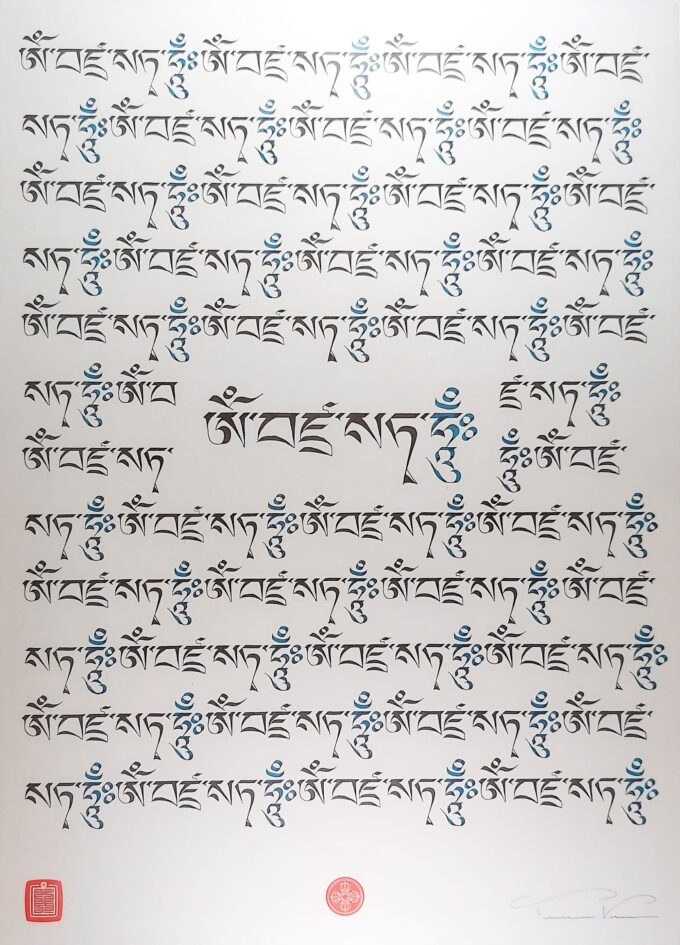 ཨོཾ་བཛྲ་སཏྭ་ཧཱུྃ༔ཨོཾ་བཛྲ་སཏྭ་ཧཱུྃ༔ཨོཾ་བཛྲ་སཏྭ་ཧཱུྃ༔ཨོཾ་བཛྲ་
སཏྭ་ཧཱུྃ༔ཨོཾ་བཛྲ་སཏྭ་ཧཱུྃ༔ཨོཾ་བཛྲ་སཏྭ་ཧཱུྃ༔ཨོཾ་བཛྲ་སཏྭ་ཧཱུྃ༔
ཨོཾ་བཛྲ་སཏྭ་ཧཱུྃ༔ཨོཾ་བཛྲ་སཏྭ་ཧཱུྃ༔ཨོཾ་བཛྲ་སཏྭ་ཧཱུྃ༔ཨོཾ་བཛྲ་
སཏྭ་ཧཱུྃ༔ཨོཾ་བཛྲ་སཏྭ་ཧཱུྃ༔ཨོཾ་བཛྲ་སཏྭ་ཧཱུྃ༔ཨོཾ་བཛྲ་སཏྭ་ཧཱུྃ༔
ཨོཾ་བཛྲ་སཏྭ་ཧཱུྃ༔ཨོཾ་བཛྲ་སཏྭ་ཧཱུྃ༔ཨོཾ་བཛྲ་སཏྭ་ཧཱུྃ༔ཨོཾ་བཛྲ་
སཏྭ་ཧཱུྃ༔ཨོཾ་བ ཛྲ་སཏྭ་ཧཱུྃ༔
ཨོཾ་བཛྲ་སཏྭ་ཧཱུྃ༔
ཨོཾ་བཛྲ་སཏྭ་ ཧཱུྃ༔ཨོཾ་བཛྲ་
སཏྭ་ཧཱུྃ༔ཨོཾ་བཛྲ་སཏྭ་ཧཱུྃ༔ཨོཾ་བཛྲ་སཏྭ་ཧཱུྃ༔ཨོཾ་བཛྲ་སཏྭ་ཧཱུྃ༔
ཨོཾ་བཛྲ་སཏྭ་ཧཱུྃ༔ཨོཾ་བཛྲ་སཏྭ་ཧཱུྃ༔ཨོཾ་བཛྲ་སཏྭ་ཧཱུྃ༔ཨོཾ་བཛྲ་
སཏྭ་ཧཱུྃ༔ཨོཾ་བཛྲ་སཏྭ་ཧཱུྃ༔ཨོཾ་བཛྲ་སཏྭ་ཧཱུྃ༔ཨོཾ་བཛྲ་སཏྭ་ཧཱུྃ༔
ཨོཾ་བཛྲ་སཏྭ་ཧཱུྃ༔ཨོཾ་བཛྲ་སཏྭ་ཧཱུྃ༔ཨོཾ་བཛྲ་སཏྭ་ཧཱུྃ༔ཨོཾ་བཛྲ་
སཏྭ་ཧཱུྃ༔ཨོཾ་བཛྲ་སཏྭ་ཧཱུྃ༔ཨོཾ་བཛྲ་སཏྭ་ཧཱུྃ༔ཨོཾ་བཛྲ་སཏྭ་ཧཱུྃ༔